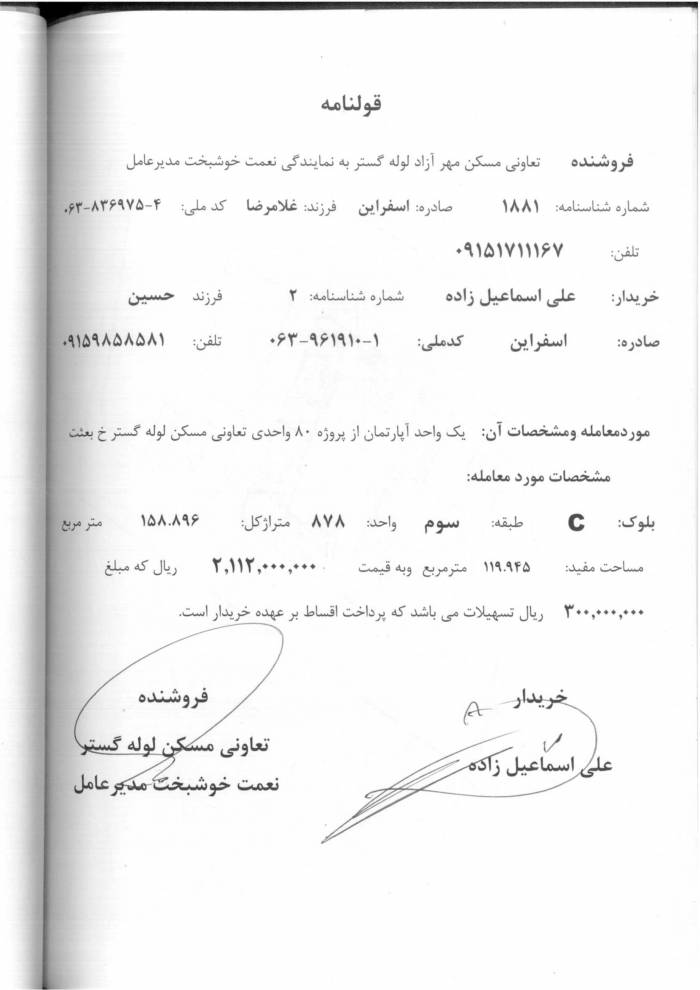 قولنامه
فروشنده تعاونی مسکن مهر آزاد لوله گستر به نمایندگی نعمت خوشبخت مدیرعامل
شماره شناسنامه: ۱۸۸۱ صادره: اسفراین فرزند: غلامرضا کد ملی: ۴-۸۳۶۹۷۵-۰۶۳
تلفن: ۰۹۱۵۱۷۱۱۱۶۷
خریدار: علی اسماعیل زاده شماره شناسنامه: ۲ فرزند حسین
صادره: اسفراین کدملی: ۱-۹۶۱۹۱۰-۰۶۳ تلفن: ۰۹۱۵۹۸۵۸۵۸۱
موردمعامله ومشخصات آن: یک واحد آپارتمان از پروژه ۸۰ واحدی تعاونی مسکن لوله گستر خ بعثت
مشخصات مورد معامله:
بلوک: C طبقه: سوم واحد: ۸۷۸ متراژکل: ۱۵۸.۸۹۶ متر مربع
مساحت مفید: ۱۱۹.۹۴۵ مترمربع وبه قیمت ۲,۱۱۲,۰۰۰,۰۰۰ ریال که مبلغ
۳۰۰,۰۰۰,۰۰۰ ریال تسهیلات می باشد که پرداخت اقساط بر عهده خریدار است.
خریدار فروشنده
علی اسماعیل زاده تعاونی مسکن لوله گستر
نعمت خوشبخت مدیرعامل